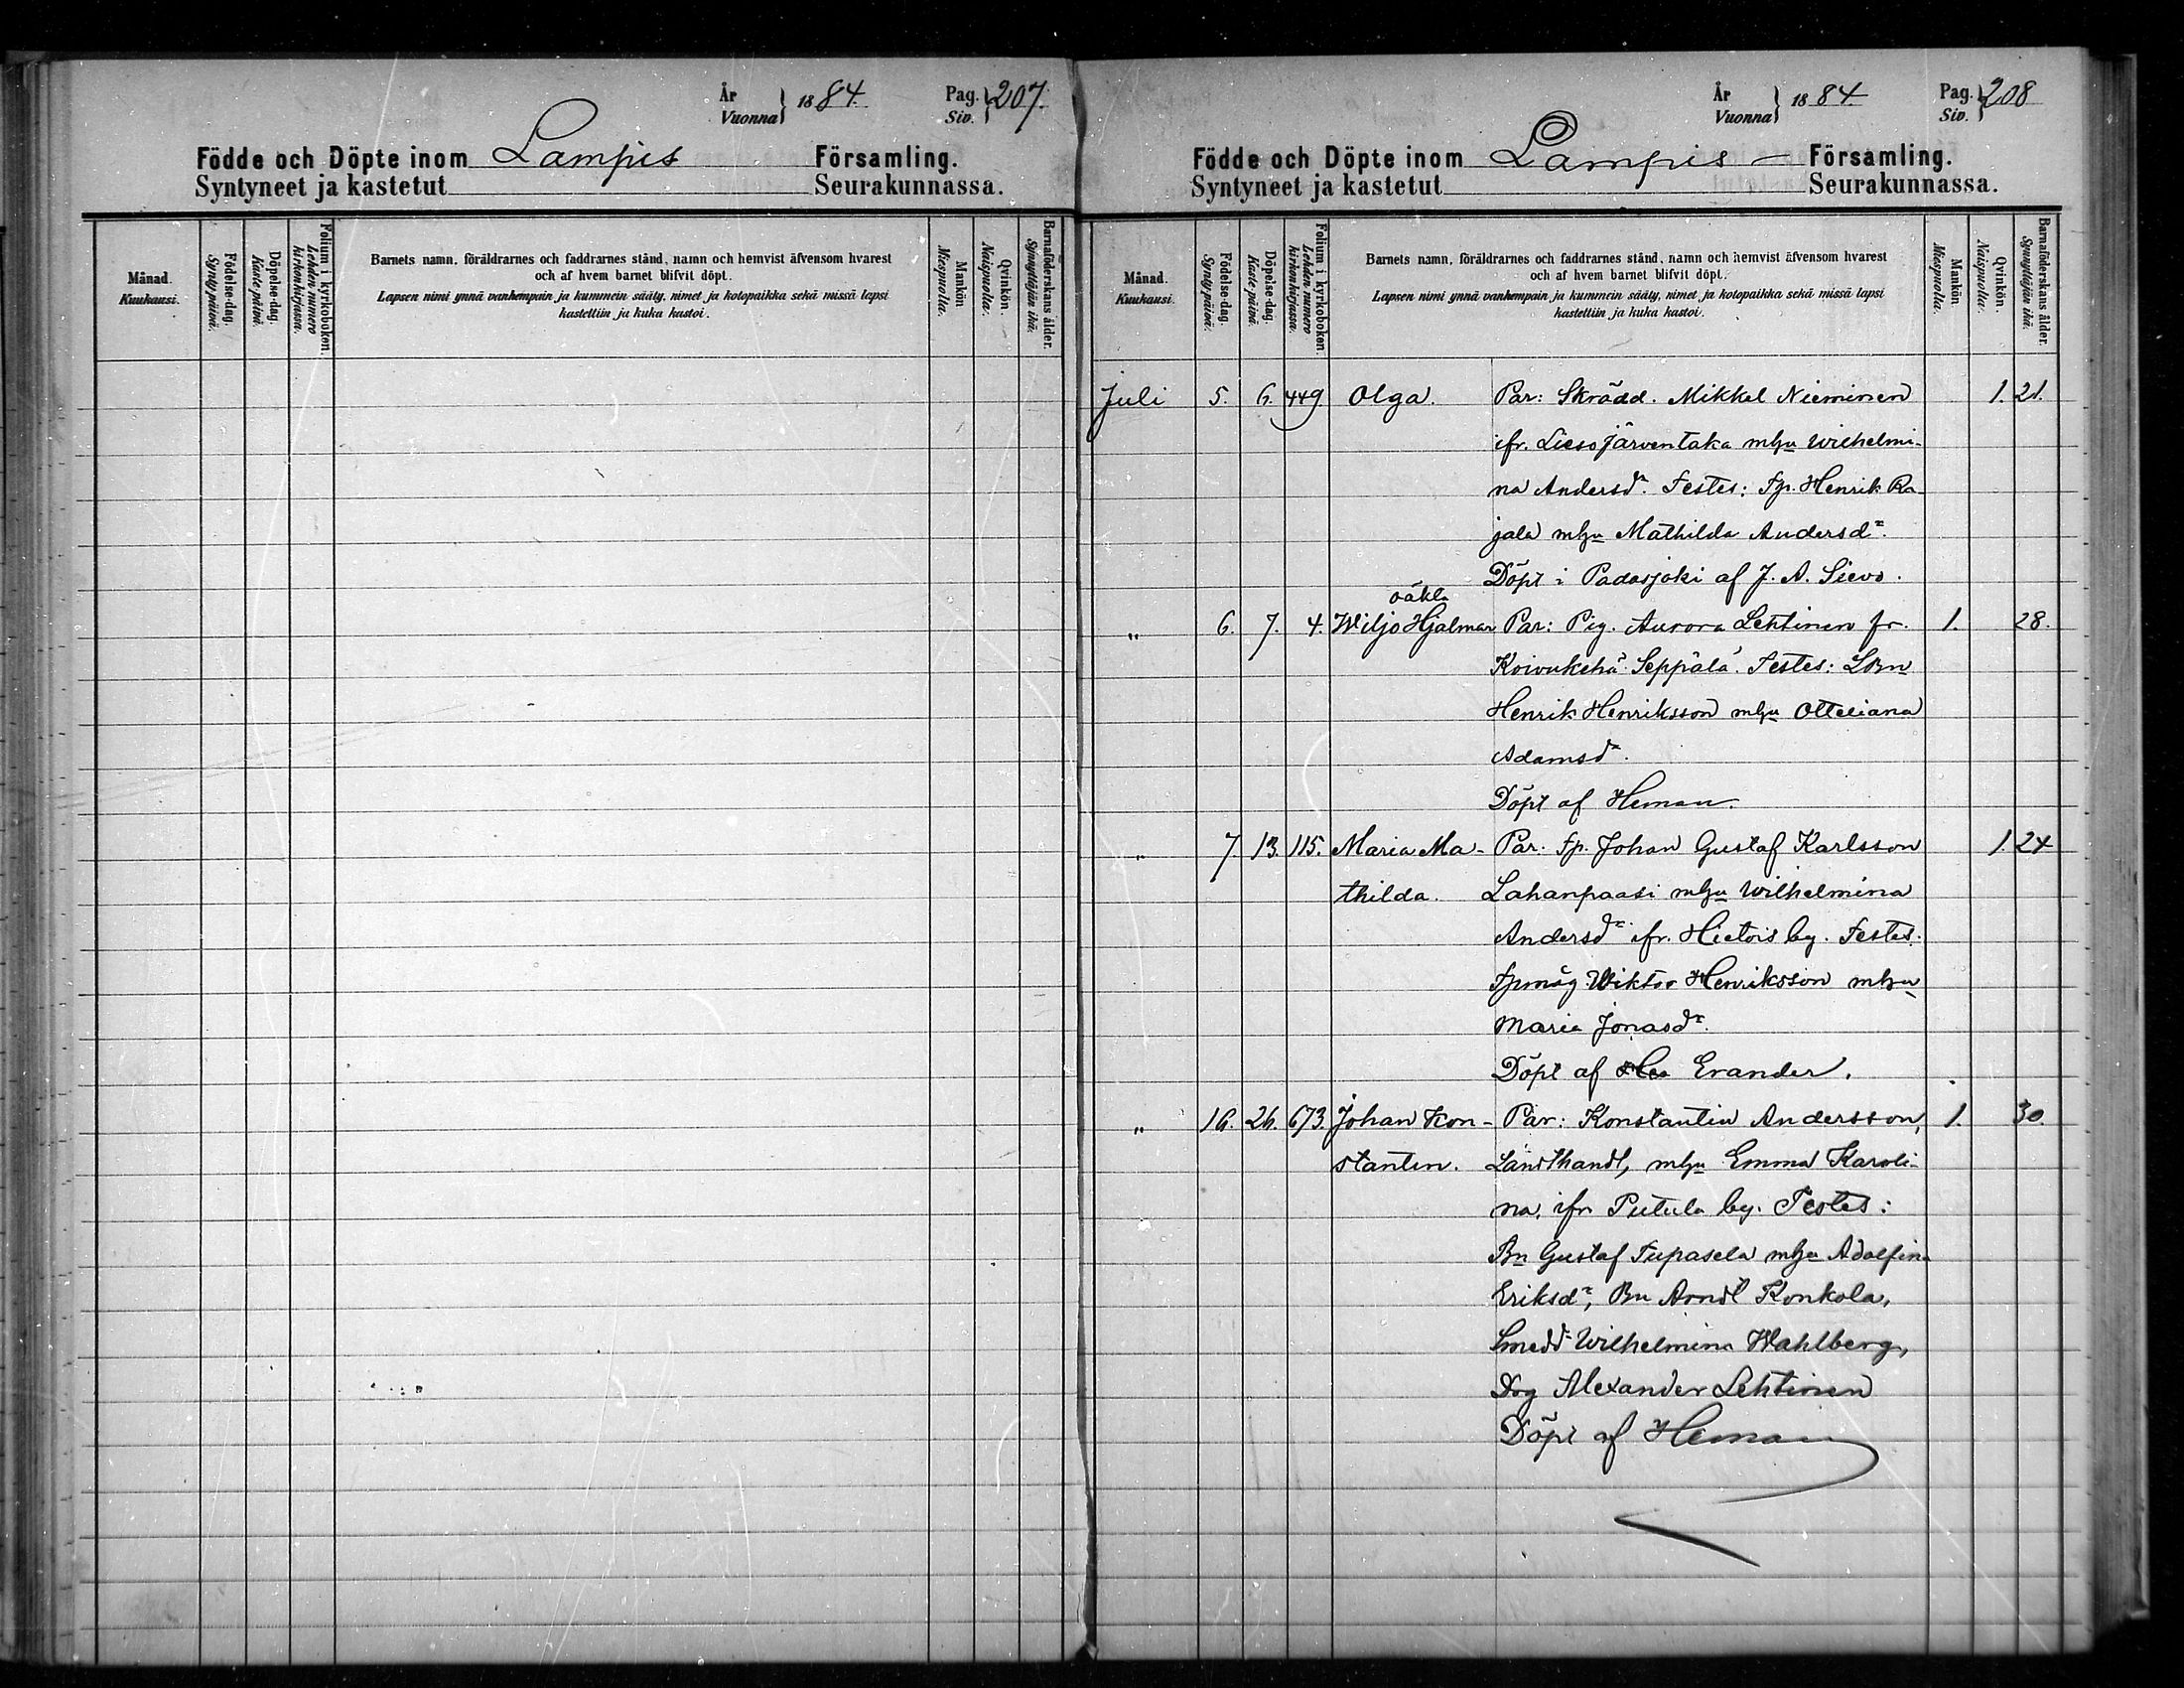 År
Vuonna } 1884.
Pag.
Siv. } 207.
Födde och Döpte inom Lampis Församling.
Syntyneet ja kastetut Seurakunnassa.
Månad.
Kuukausi.
Födelse-dag.
Synty-päivä.
Döpelse-dag.
Kaste-päivä.
Folium i kyrkoboken.
Lehden numero kirkonkirjassa.
Barnets namn, föräldrarnes och faddrarnes stånd, namn och hemvist äfvensom hvarest
och af hvem barnet blifvit döpt.
Lapsen nimi ynnä vanhempain ja kummein sääty, nimet ja kotopaikka sekä missä lapsi
kastettiin ja kuka kastoi.
Mankön
Miespuolta.
Qvinkön.
Naispuolta.
Barnaföderskans ålder.
Synnyttäjän ikä.
År
Vuonna } 1884
Pag.
Siv. } 208
Födde och Döpte inom Lampis — Församling.
Syntyneet ja kastetut Seurakunnassa.
Månad.
Kuukausi.
Födelse-dag.
Synty-päivä.
Döpelse-dag.
Kaste-päivä.
Folium i kyrkoboken.
Lehden numero kirkonkirjassa.
Barnets namn, föräldrarnes och faddrarnes stånd, namn och hemvist äfvensom hvarest
och af hvem barnet blifvit döpt.
Lapsen nimi ynnä vanhempain ja kummein sääty, nimet ja kotopaikka sekä missä lapsi
kastettiin ja kuka kastoi.
Mankön
Miespuolta.
Qvinkön.
Naispuolta.
Barnaföderskans ålder.
Synnyttäjän ikä.
Juli 5. 6. 449 Olga. Par: Skrädd. Mikkel Nieminen 1. 21.
ifr. Lieso Järventaka mhu Wilhelmi-
na Andersdr. Testes: Tp. Henrik Ra-
jala mhu Mathilda Andersdr.
Döpt i Padasjoki af J. A. Sievo.
oäkta
" 6. 7. 4. Wiljo Hjalmar Par: Pig. Aurora Lehtinen fr. 1. 28.
Koivukehä Seppälä. Testes: LBn
Henrik Henriksson mhu Otteliana
Adamsdr.
Döpt af Heman.
" 7. 13. 115. Maria Ma- Par: Tp. Johan Gustaf Karlsson 1. 24
thilda. Lahanpaasi mhu Wilhelmina
Andersdr ifr. Hietois by. Testes:
Tpmåg Wiktor Henriksson mhu
Maria Jonasdr.
Döpt af Evander.
" 16. 26. 673. Johan Kon- Par: Konstantin Andersson, 1. 30.
stantin. Landthandl, mhu Emma Karoli-
na, ifr Putula by. Testes:
Bn Gustaf Tupasela mhu Adolfina
Eriksdr, Bn Arndt Konkola,
Smeddr Wilhelmina Wahlberg,
Dog Alexander Lehtinen
Döpt af Heman